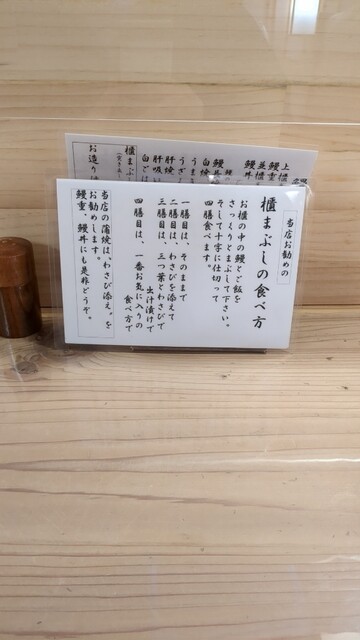 当店お勧めの
櫃まぶしの食べ方
お櫃の中の鰻とご飯を
さっくりとまぶして下さい。
そして十字に仕切って
四膳食べます。
一膳目は、そのままで
二膳目は、わさびを添えて
三膳目は、三つ葉とわさびで
出汁漬けで
四膳目は、一番お気に入りの
食べ方で
当店の蒲焼は、わさび添え。を
お勧めします。
鰻重、鰻丼にも是非どうぞ。
鰻重
鰻丼
白焼
うまき
うざく
肝焼
肝吸
白ご
櫃まぶし
お造り